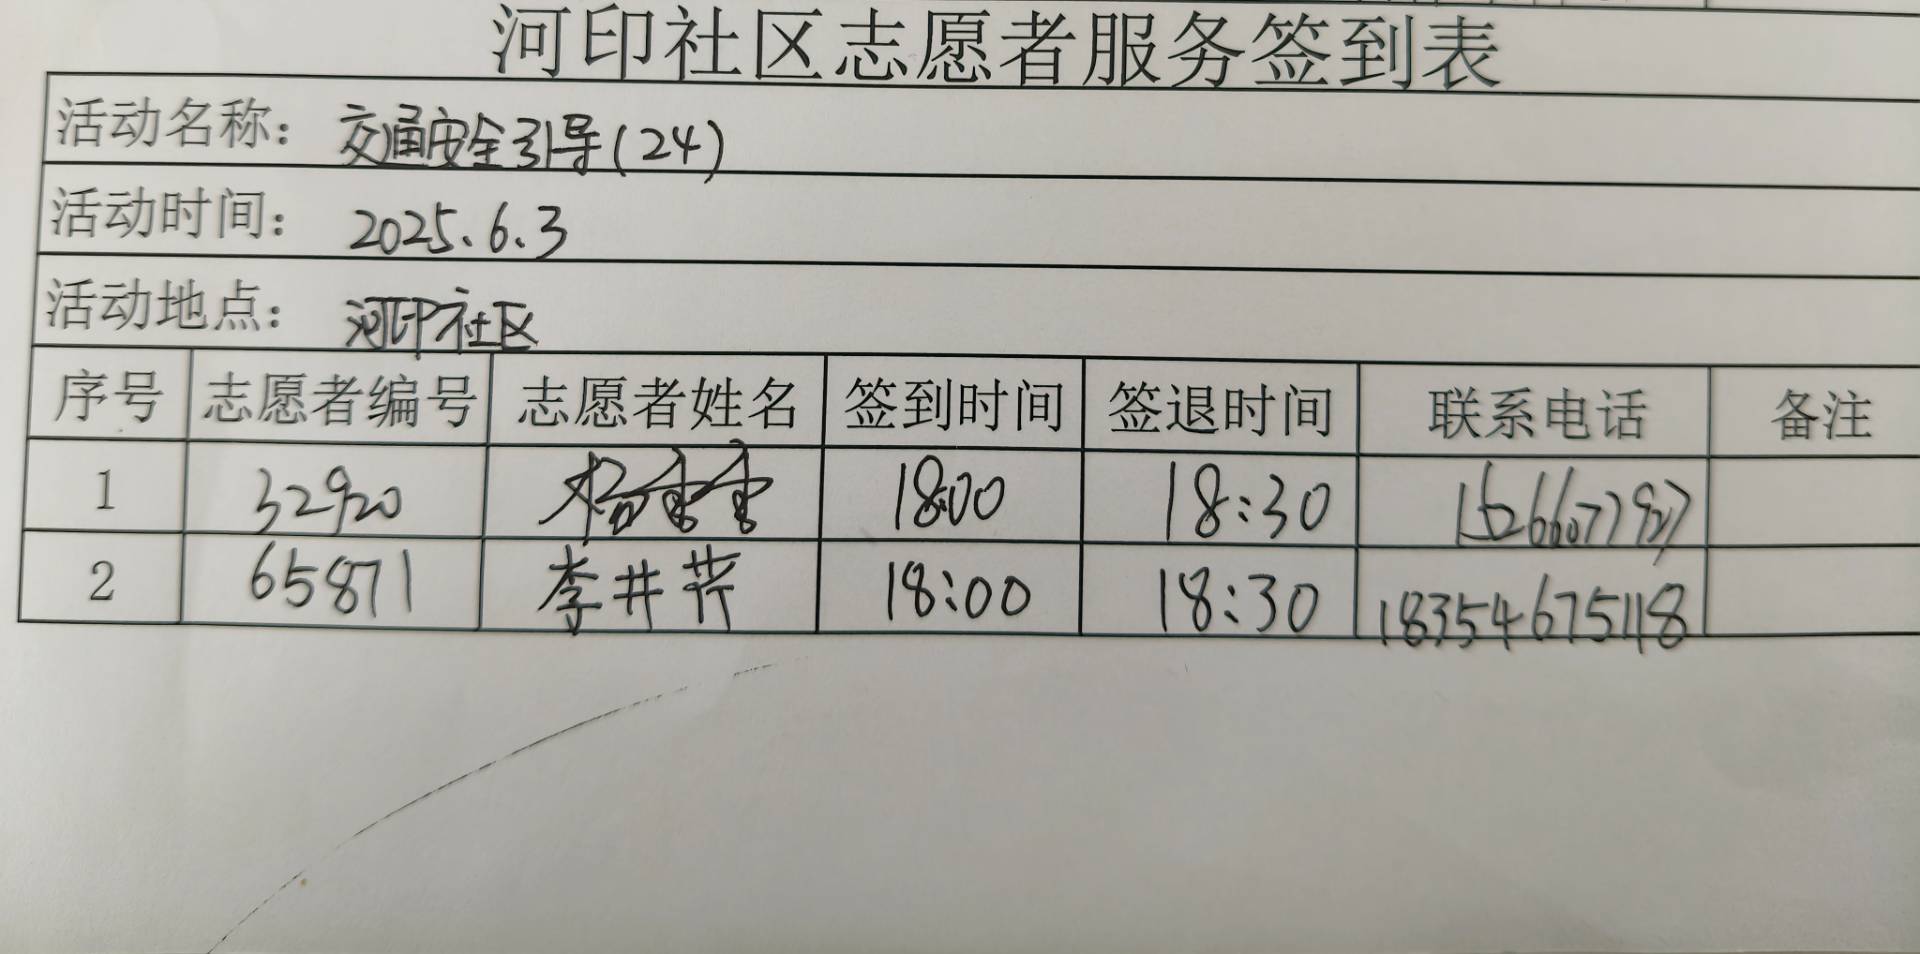 河印社区志愿者服务签到表
活动名称： 交通安全引导(24)
活动时间： 2025.6.3
活动地点： 河印社区
序号 志愿者编号 志愿者姓名 签到时间 签退时间 联系电话 备注
1 32920 18:00 18:30
2 65871 李井芹 18:00 18:30 18354675118